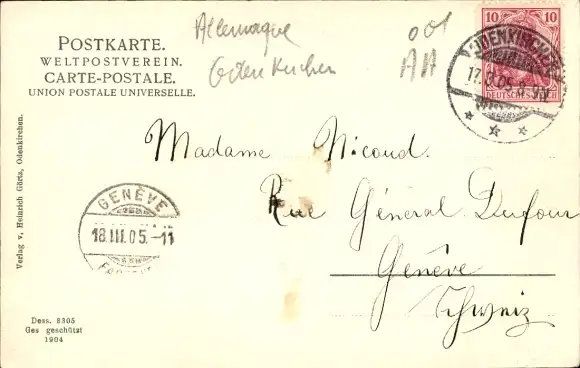 Allemagne
001
Odenkirchen
AA
POSTKARTE.
WELTPOSTVEREIN.
CARTE-POSTALE.
UNION POSTALE UNIVERSELLE.
10 10
DEUTSCHES REICH
ODENKIRCHEN
17.3.05.
Madame Nicoud.
Rue Général Dufour
Genève
Schweiz
GENÈVE
18.III.05.-11
Verlag v. Heinrich Görtz, Odenkirchen.
Dess. 8305
Ges geschützt
1904